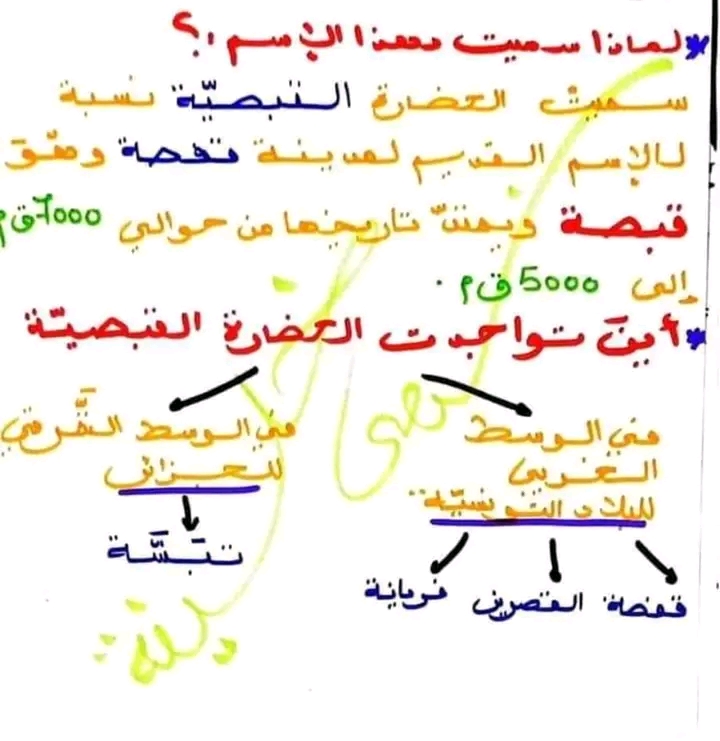 * لماذا سميت بهذا الإسم ؟
سميت الحضارة القبصيّة نسبة
للإسم القديم لمدينة قفصة وهو
قبصة ويمتدّ تاريخها من حوالي 7000 ق م
إلى 5000 ق م .
* أين تواجدت الحضارة القبصيّة
في الوسط الغربي للبلاد التونسيّة
قفصة القصرين فريانة
في الوسط الشرقي للجزائر
تبسّة